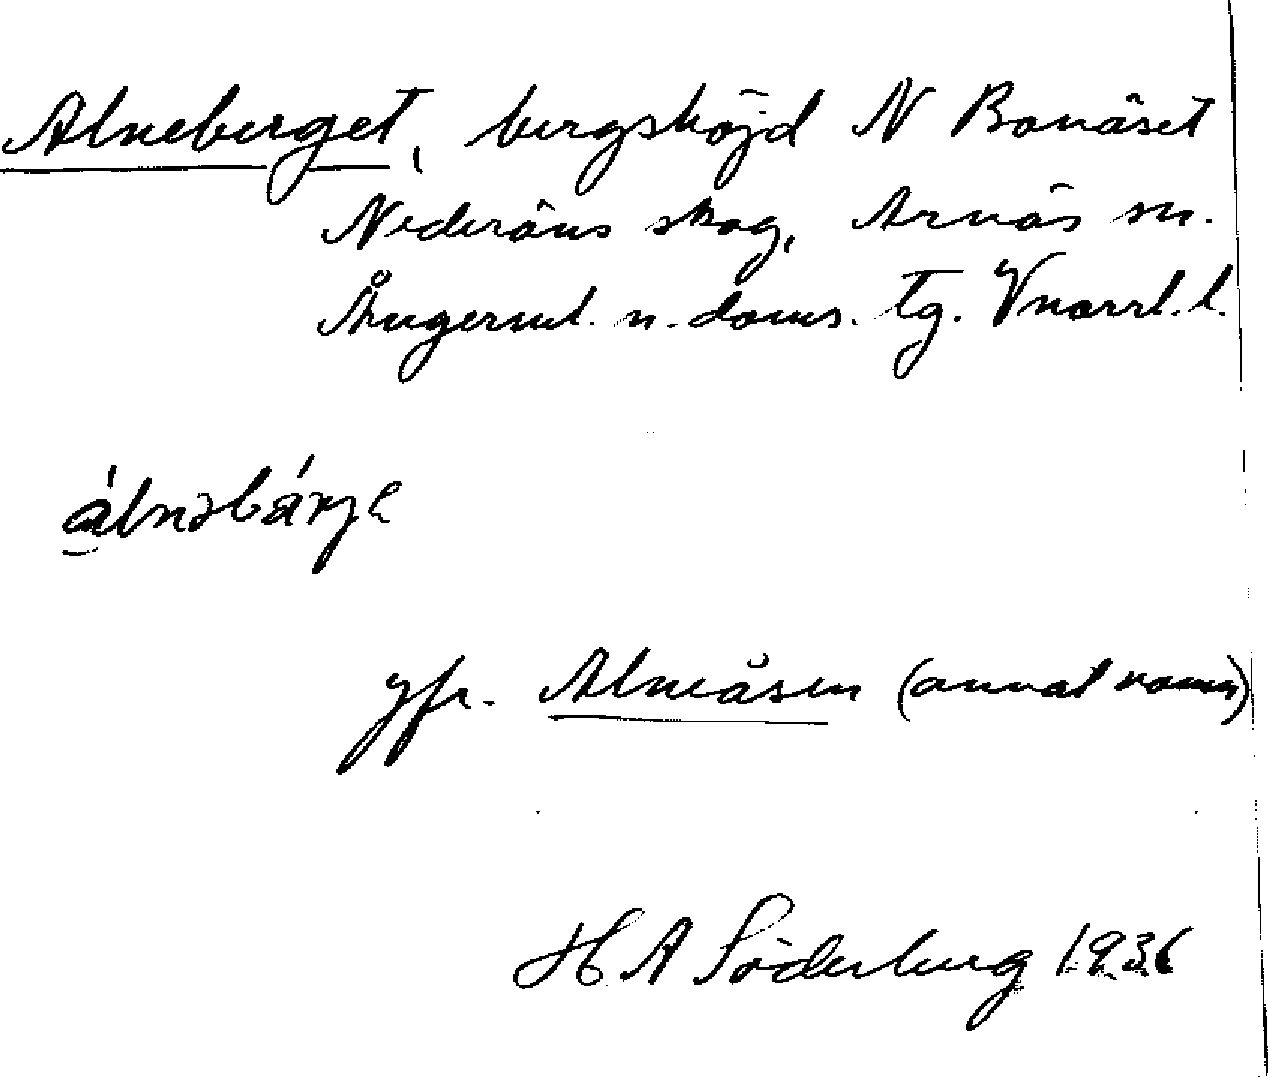 Alneberget, bergshöjd N Bonäset
Nederåns skog, Arnäs sn.
Ångerml. n. doms. tg. Vnorrl. l.
álnəbárje
jfr. Alneåsen (annat namn)
H A Söderberg 1936